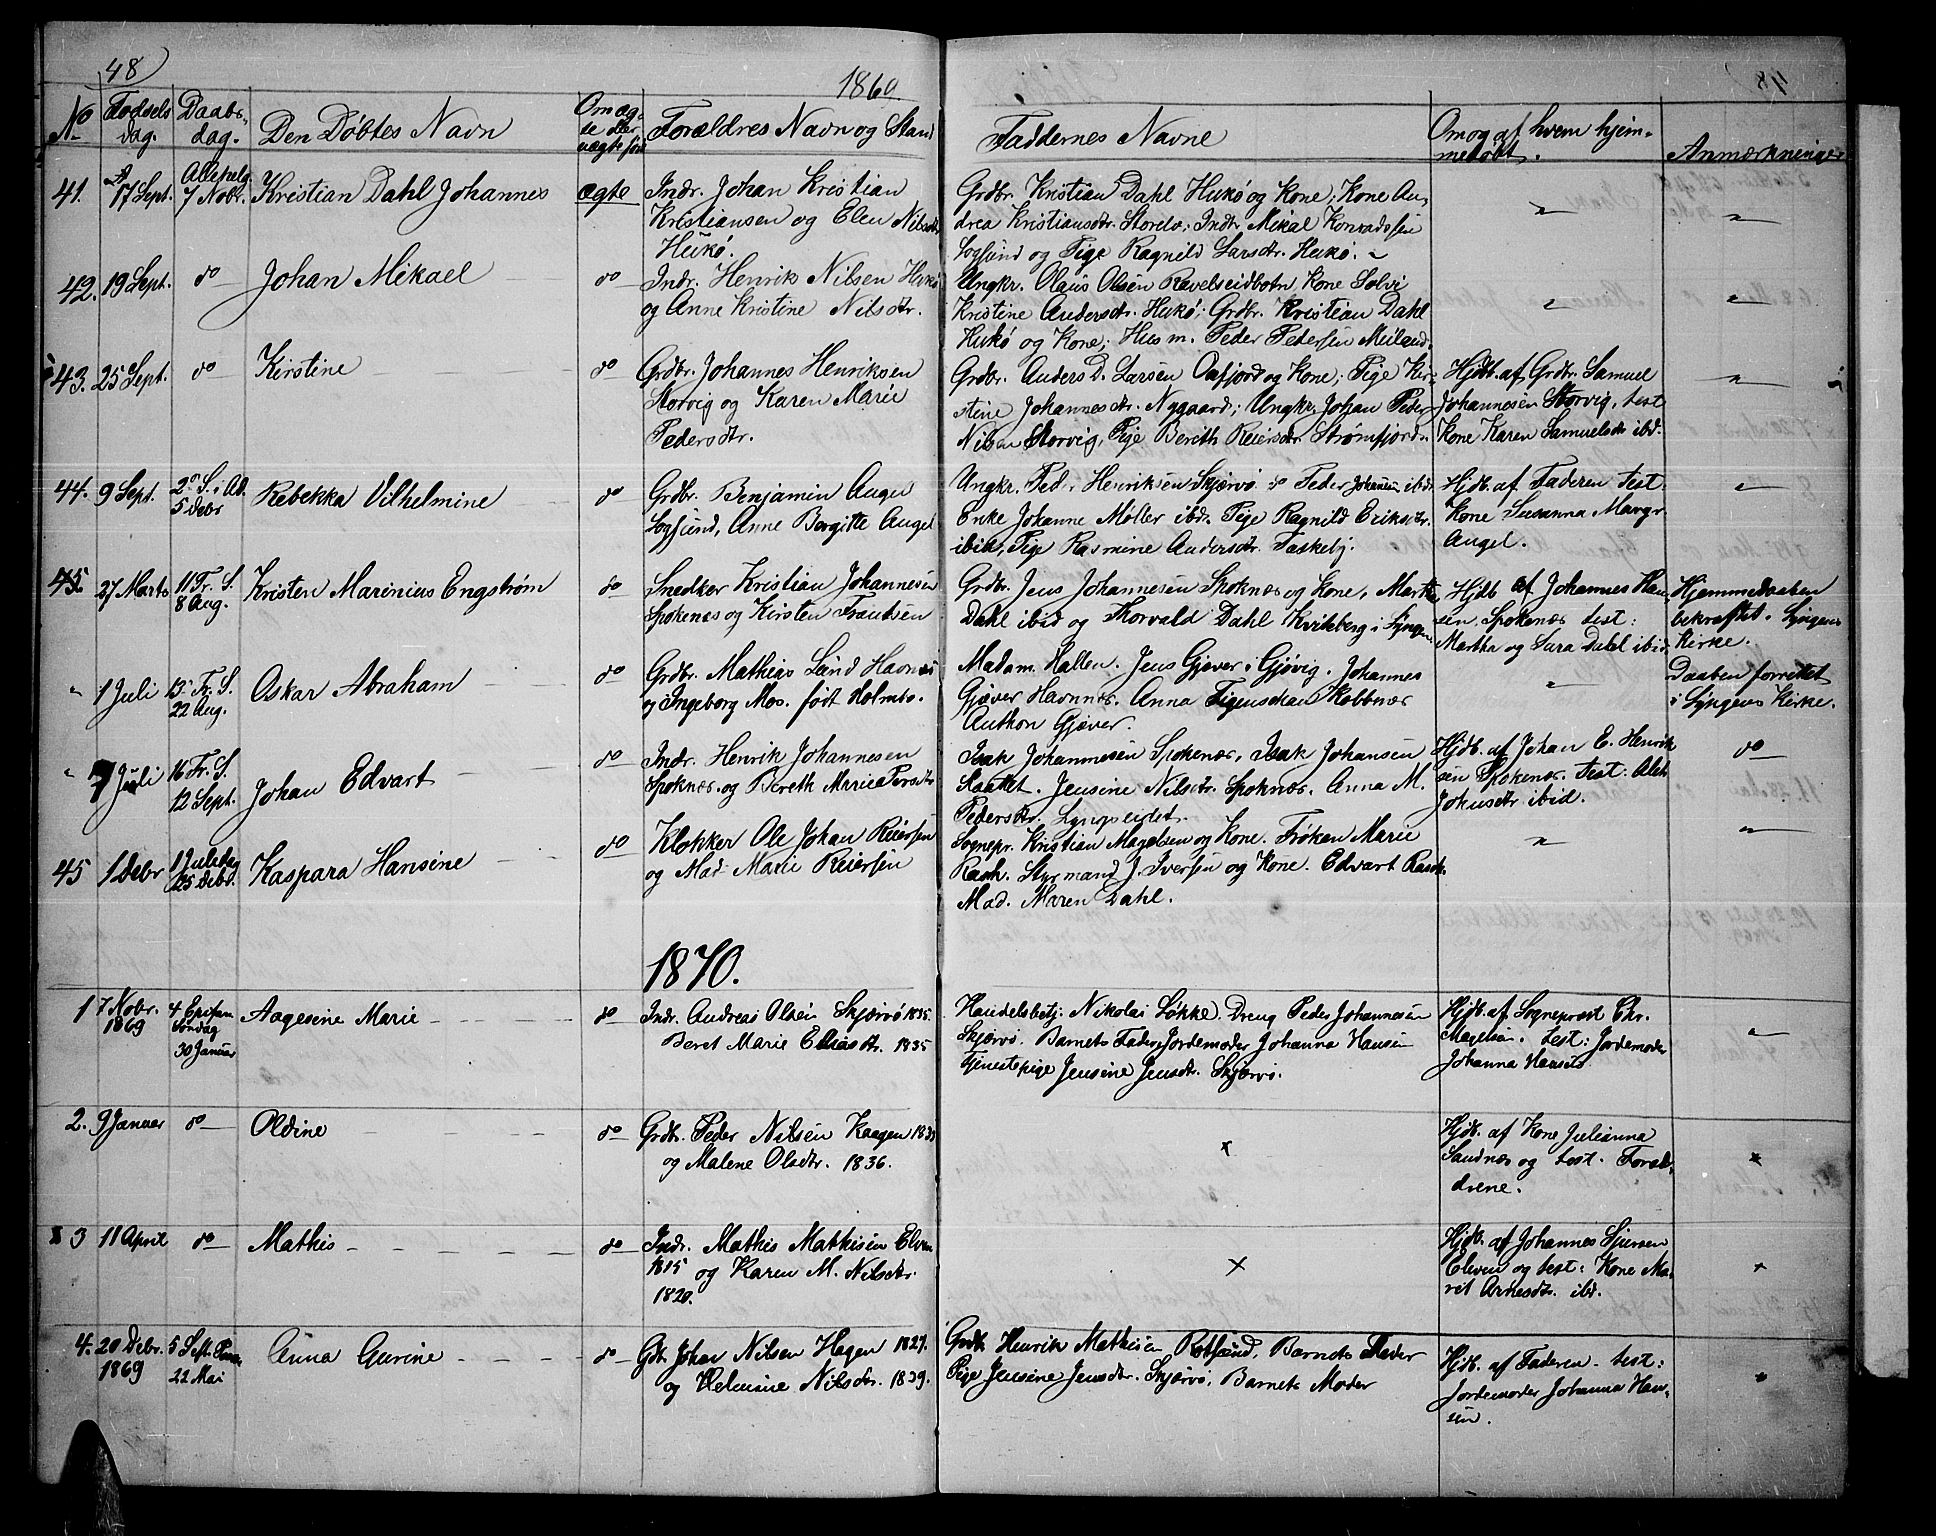 48
1869
No
Fødsels dag.
Daabs dag.
Den Døbtes Navn
Omægte eller uægte født
Forældres Navn og Stand
Faddernes Navne
Om og af hvem hjemmedøbt.
Anmærkninger
41. 17 Sept. Allehelg. 7 Nobr. Kristian Dahl Johannes ægte Indr. Johan Kristian
Kristiansen og Elen Nilsdtr
Hukø.
Grdbr. Kristian Dahl Hukø og Kone; Kone An-
drea Kristiansdtr. Storelv; Indr. Mikal Konradsen
Logsund og Pige Ragnild Larsdtr. Hukø.
42. 19 Sept. do Johan Mikael do Indr. Henrik Nilsen Hukø
og Anne Kristine Nilsdtr.
Ungkr. Olaus Olsen Ravelseidbotn, Kone Solvi
Kristine Andersdtr. Hukø; Grdbr. Kristian Dahl
Hukø og Kone; Husm. Peder Pedersen Meiland.
43. 25 Sept. do Kirstine do Grdbr. Johannes Henriksen
Storvig og Karen Marie
Pedersdtr.
Grdbr. Anders D. Larsen Oxfjord og Kone; Pige Kir-
stine Johannesdtr. Nygaard; Ungkr. Johan Peder
Nilsen Storvig, Pige Berith Reiersdtr. Strømfjord
Hjdb. af Grdbr. Samuel
Johannesen Storvig, test
Kone Karen Samuelsdtr ibd.
44. 9 Sept. 2 S. i Ad. 5 Debr Rebekka Vilhelmine do Grdbr. Benjamin Angel
Logsund, Anne Borgitte Angel
Ungkr. Ped. Henriksen Skjærvø. do Peder Johansen ibd.
Enke Johanne Møller ibd. Pige Ragnild Eriksdtr.
ibid, Pige Rasmine Andersdtr. Taskeby.
Hjdb. af Faderen Test.
Kone Susanna Margr.
Angel.
45. 27 Marts 11 Tr. S. 8 Aug. Kristen Marinius Engstrøm do Snedker Kristian Johannesen
Spokenes og Kirsten Frantsen
Grdbr. Jens Johannesen Spoknæs og Kone, Martha
Dahl ibid og Thorvald Dahl Kvikberg i Lyngen
Hjdb af Johannes Han-
sen, Spoknæs test:
Martha og Sara Dahl ibid
Hjemmedaaben
bekræftet i Lyngens
Kirke.
1 Juli 13 Tr. S. 22 Aug. Oskar Abraham do Grdbr. Mathias Lund Havnnæs
og Ingeborg Mos. født Holmbo.
Madam Hallen. Jens Gjæver i Gjøvig. Johannes
Gjæver Havnnæs. Anna Figenschau Kobbnæs
Anthon Gjæver.
Daaben forrettet
i Lyngens Kirke.
7 Juli 16 Tr. S. 12 Sept. Johan Edvart do Indr. Henrik Johannesen
Spoknæs. og Bereth Marie Persdtr
Isak Johannesen Spokenæs, Isak Johansen
Kaaket. Jensine Nilsdtr. Spoknæs. Anna M.
Pedersdtr. Lyngseidet.
Hjdb. af Johan E. Henrik-
sen Spokenæs. Test: Alet
Johnsdtr ibid.
do
45 1 Debr 1 Juledag 25 Debr. Kaspara Hansine do Klokker Ole Johan Reiersen
og Mad. Marie Reiersen
Sognepr. Kristian Magelsen og Kone. Frøken Marie
Rash. Styrmand J. Iversen og Kone. Edvart Rasch.
Mad. Maren Dahl.
1870.
1 7 Nobr. 1869 4 Epifan Søndag 30 Januar Aagesine Marie do Indr. Andreas Olsen Skjærvø 1835.
Beret Marie Eliasdtr. 1835
Handelsbetj. Nikolai Løkke. Dreng Peder Johannesen
Skjærvø. Barnets Fader, Jordemoder Johanna Hansen
Tjenestepige Jensine Jensdtr. Skjærvø.
Hjdb. af Sogneprest Chr.
Magelsen. test: Jordemoder
Johanna Hansen
2. 9 Januar do Oldine do Grdb. Peder Nilsen Kaagen
og Malene Olsdtr. 1836.
Hjdb. af Kone Julianna
Sandnæs og test. Foræl-
drene.
3 11 April do Mathis do Indr. Mathis Mathisen Elven
1815 og Karen M. Nilsdtr.
1820.
Hjdb. af Johannes Sjursen
Elven og test: Kone Ma-
rit Arnesdtr. ibd.
4. 20 Debr. 1869 22 Mai Anna Gurine do Gdb. Johan Nilsen Hagen 1829.
og Helmine Nilsdtr. 1839.
Grdb. Henrik Mathisen Rotsund, Barnets Fader
Pige Jensine Jensdtr. Skjærvø, Barnets Moder
Hjdb. af Faderen. test:
Jordemoder Johanna Han-
sen.